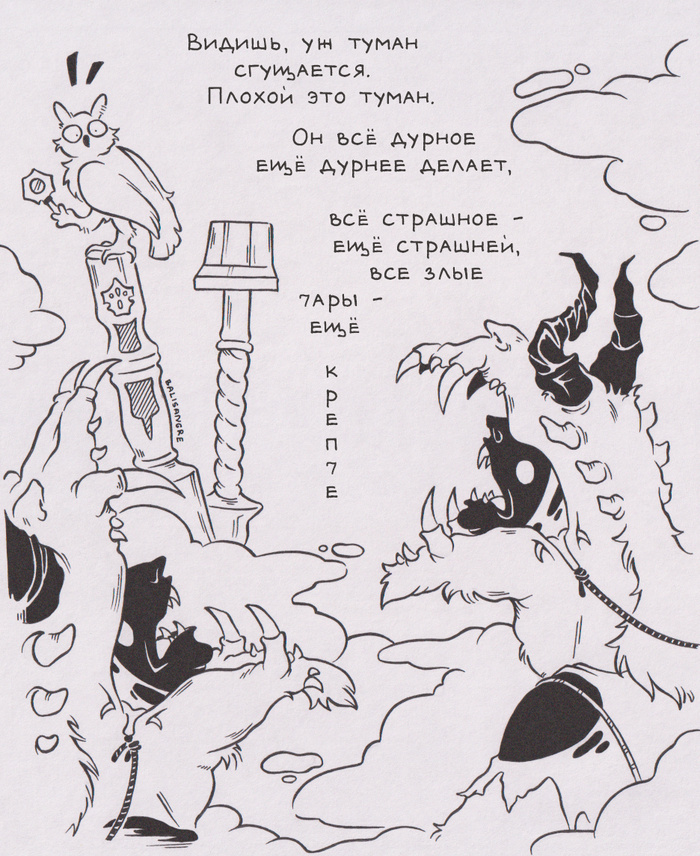 Видишь, уж туман
сгущается.
Плохой это туман.
Он всё дурное
ещё дурнее делает,
всё страшное -
ещё страшней,
все злые
чары -
ещё
к
р
е
п
ч
е
BALISANGRE